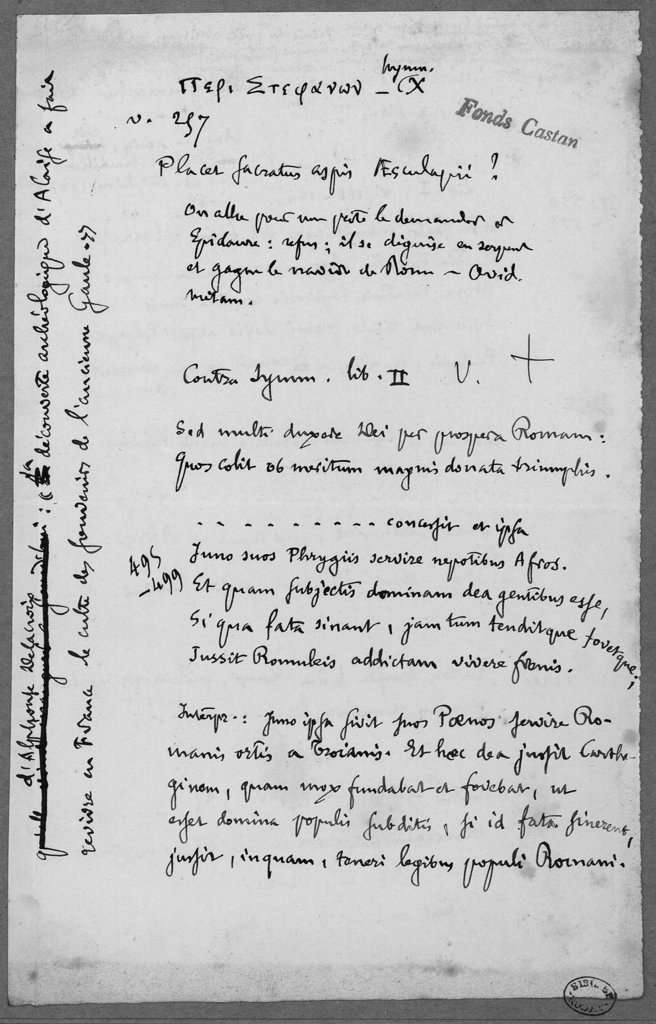 Περι Στεφανων – hymn. X
v. 257
Fonds Castan
Placet sacratus aspis Æsculapii ?
On alla pour une peste le demander à
Epidaure : refus ; il se déguise en serpent
et gagne le navire de Rome – Ovid.
metam.
Contra Symm. lib. II V.
Sed multi duxere Dei per prospera Romam :
Quos colit ob meritum magnis donata triumphis.
. . . . . . . . . concessit et ipsa
495
– 499
Juno suos Phrygiis servire nepotibus Afros.
Et quam subjectis dominam dea gentibus esse,
Si qua fata sinant, jam tum tenditque fovetque ;
Jussit Romuleis addictam vivere frenis.
Interpr. : Juno ipsa sivit suos Pœnos servire Ro-
manis ortis a Troianis. Et hæc dea jussit Cartha-
ginem, quam mox fundabat et fovebat, ut
esset domina populis subditis, si id fata sinerent,
jussit, inquam, teneri legibus populi Romani.
d'Alphonse Delacroix : la découverte archéologique d'Alaise a fait
revivre en France le culte des souvenirs de l'ancienne Gaule